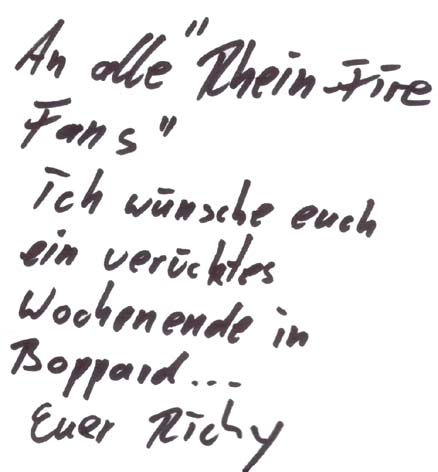 An alle "Rhein Fire
Fans"
Ich wünsche euch
ein verücktes
Wochenende in
Boppard...
Euer Richy